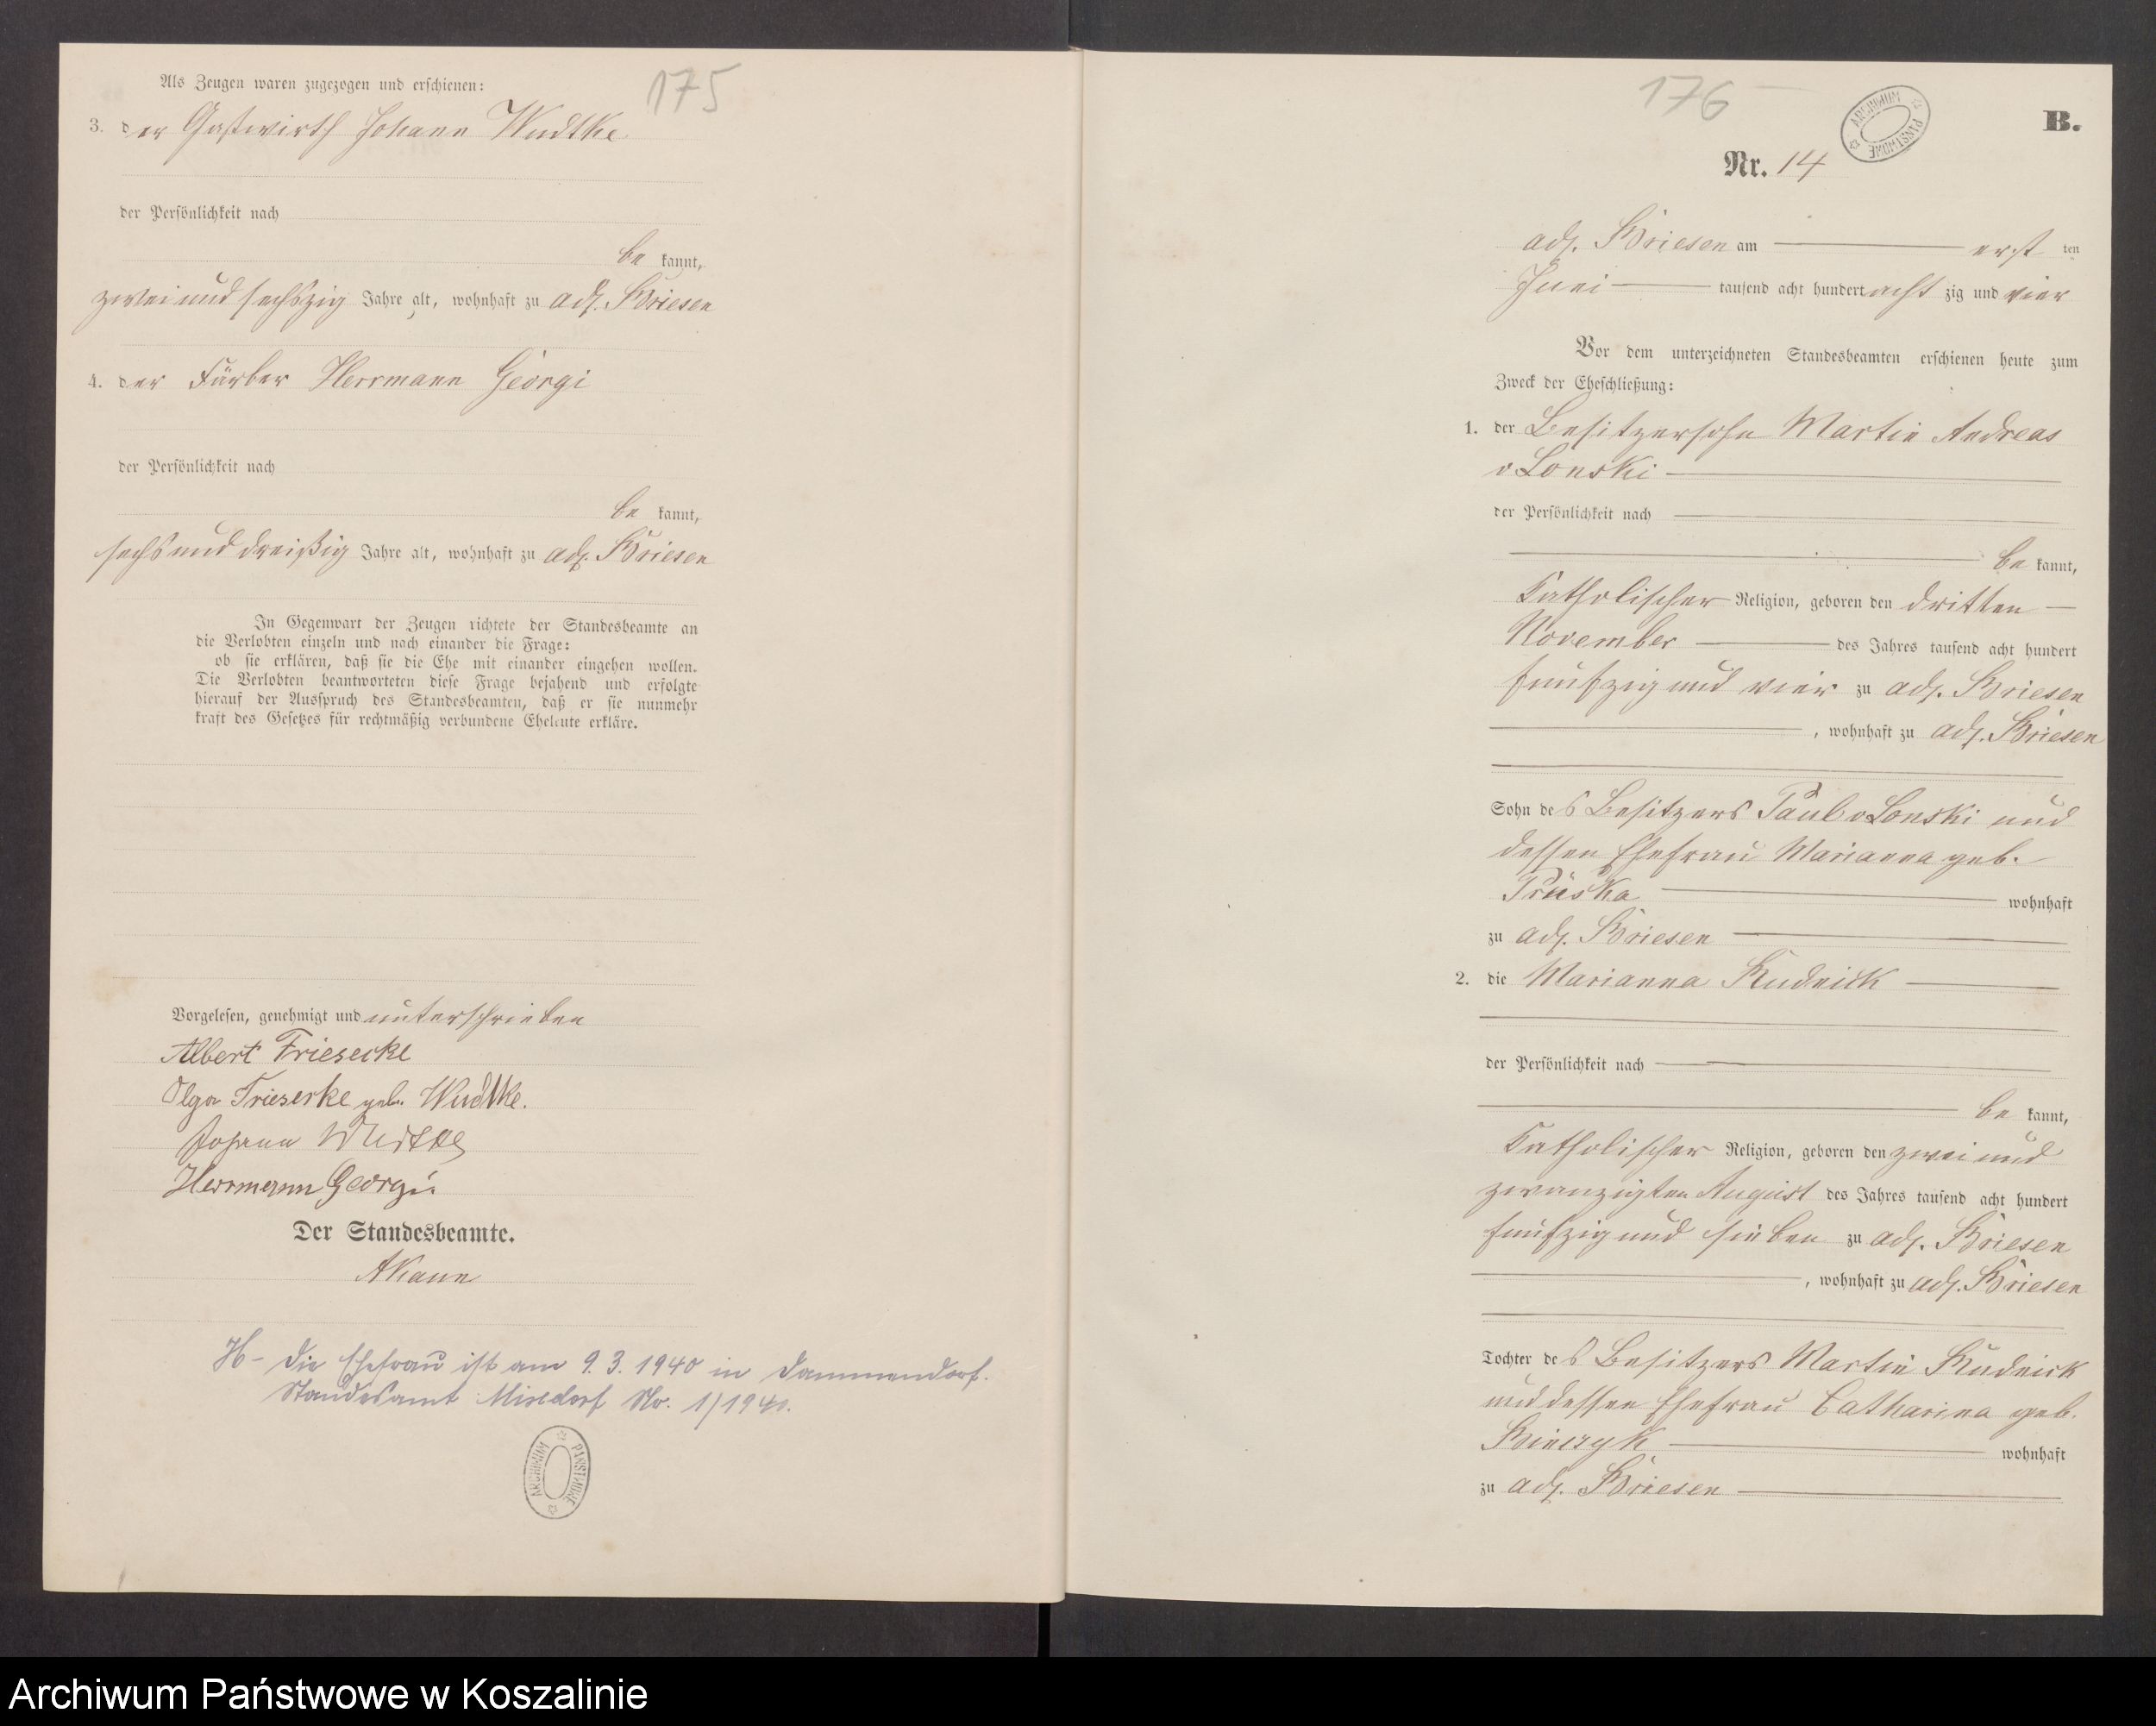 175
Als Zeugen waren zugezogen und erschienen:
3. der Gastwirth Johann Wudtke
der Persönlichkeit nach
be kannt,
zwei und sechszig Jahre alt, wohnhaft zu adl. Briesen
4. der Färber Herrmann Georgi
der Persönlichkeit nach
be kannt,
sechs und dreißig Jahre alt, wohnhaft zu adl. Briesen
In Gegenwart der Zeugen richtete der Standesbeamte an
die Verlobten einzeln und nach einander die Frage:
ob sie erklären, daß sie die Ehe mit einander eingehen wollen.
Die Verlobten beantworteten diese Frage bejahend und erfolgte
hierauf der Ausspruch des Standesbeamten, daß er sie nunmehr
kraft des Gesetzes für rechtmäßig verbundene Eheleute erkläre.
Vorgelesen, genehmigt und unterschrieben
Albert Friesecke
Olga Friesecke geb. Wudtke.
Johann Wudtke
Herrmann Georgi.
Der Standesbeamte.
AKann
H- Die Ehefrau ist am 9.3.1940 in Dammendorf.
Standesamt No. 1/1940.
ARCHIWUM PAŃSTWOWE
176
ARCHIWUM PAŃSTWOWE
B.
Nr. 14
adl. Briesen am erst ten
Juni tausend acht hundert acht zig und vier
Vor dem unterzeichneten Standesbeamten erschienen heute zum
Zweck der Eheschließung:
1. der Besitzersohn Martin Andreas
v Lonski
der Persönlichkeit nach
be kannt,
Katholischer Religion, geboren den dritten
November des Jahres tausend acht hundert
funfzig und vier zu adl. Briesen
, wohnhaft zu adl. Briesen
Sohn des Besitzers Paul v Lonski und
dessen Ehefrau Marianna geb.
Pruska wohnhaft
zu adl. Briesen
2. die Marianna Rudnick
der Persönlichkeit nach
be kannt,
Katholischer Religion, geboren den zwei und
zwanzigten August des Jahres tausend acht hundert
funfzig und sieben zu adl. Briesen
, wohnhaft zu adl. Briesen
Tochter des Besitzers Martin Rudnick
und dessen Ehefrau Catharina geb.
wohnhaft
zu adl. Briesen
Archiwum Państwowe w Koszalinie